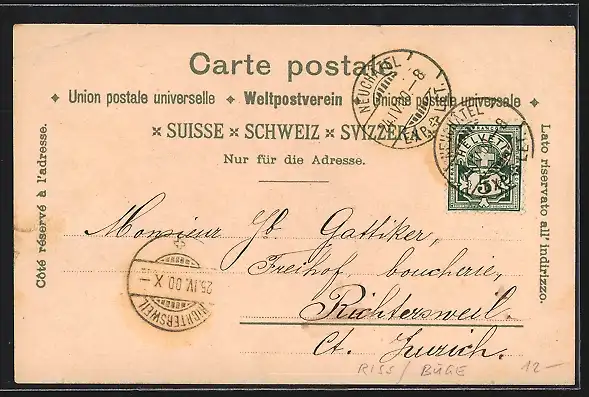 Carte postale
Union postale universelle + Weltpostverein + Unione postale universale
× SUISSE × SCHWEIZ × SVIZZERA ×
Nur für die Adresse.
Côté réservé à l'adresse.
Lato riservato all' indirizzo.
NEUCHATEL
24.IV.00.–8
LETTR
EXP.
NEUCHÂTEL
HELVETIA
5
Monsieur Jb. Gattiker,
Freihof, boucherie,
Richtersweil.
Ct. Zurich.
25.IV.00.X
RICHTERSWEIL
RISS / BÜGE
12–